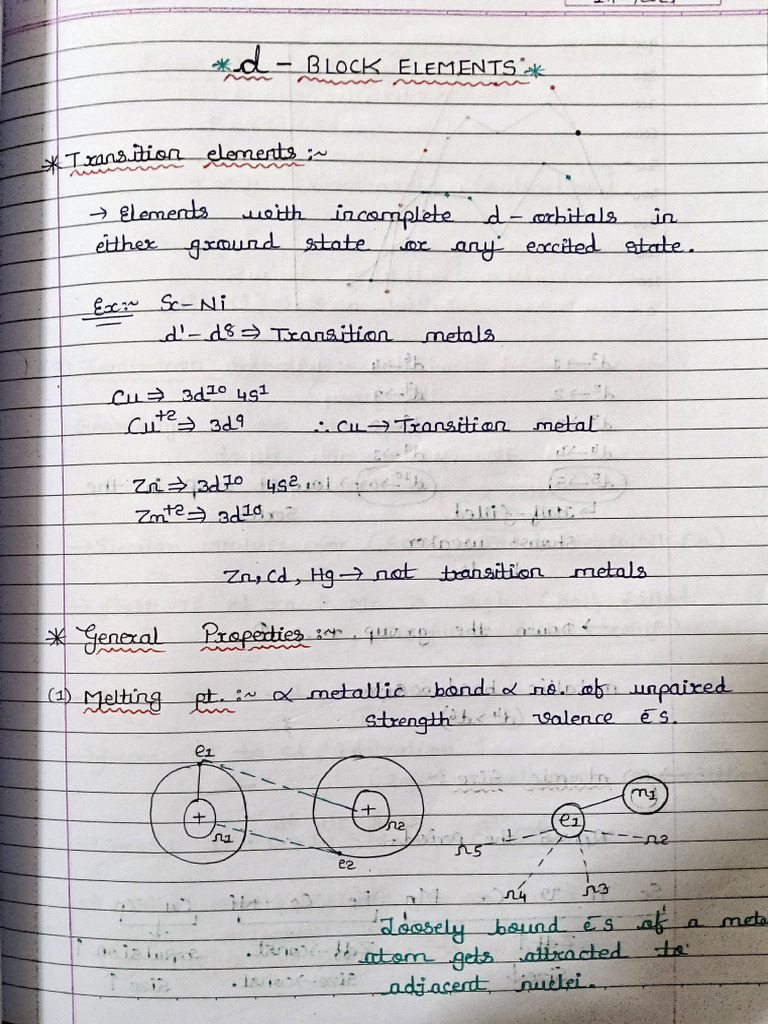 *d - BLOCK ELEMENTS*
* Transition elements :~
→ Elements with incomplete d-orbitals in
either ground state or any excited state.
Ex:~ Sc-Ni
d¹- d8 ⇒ Transition metals
Cu ⇒ 3d¹⁰ 4s¹
Cu⁺² ⇒ 3d9 ∴ Cu → Transition metal
Zn ⇒ 3d¹⁰ 4s²
Zn⁺² ⇒ 3d¹⁰
Zn, Cd, Hg → not transition metals
* General Properties :~
(1) Melting pt. :~ ∝ metallic bond ∝ no. of unpaired
strength valence ēs.
e1
+ n1 + n2 e1 n1
e2 n5 n2
n4 n3
Loosely bound ēs of a meta
atom gets attracted to
adjacent nuclei.